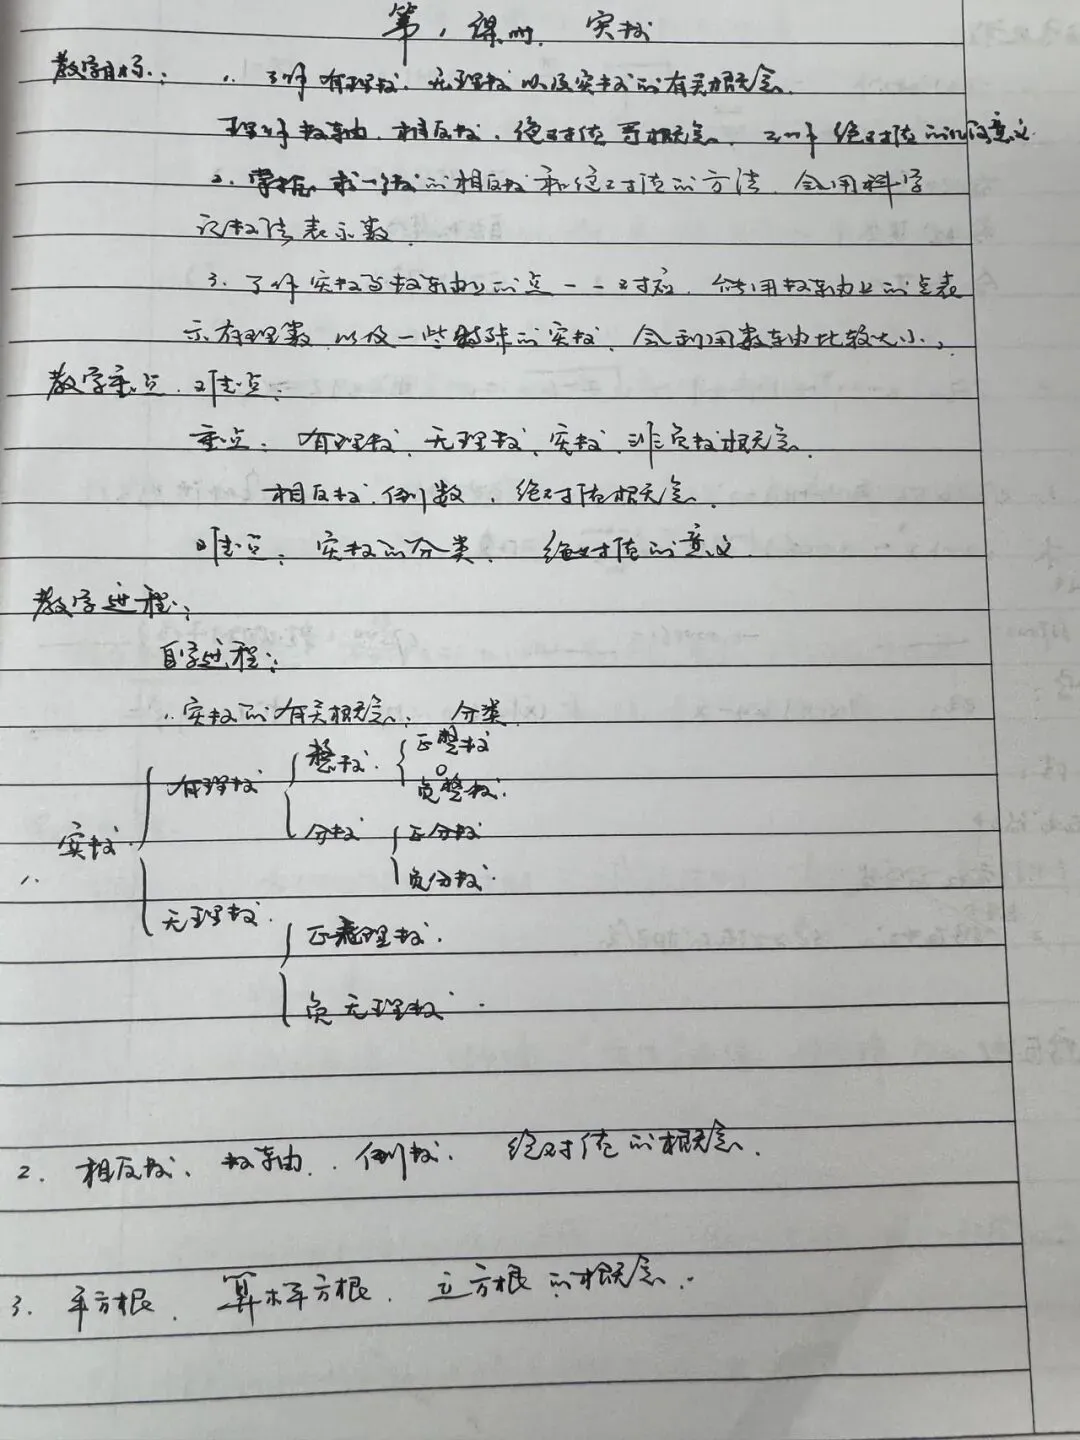 第1课时 实数
教学目标: 1. 了解有理数、无理数以及实数的有关概念.
理解数轴、相反数、绝对值等概念, 了解绝对值的几何意义
2. 掌握求一个数的相反数和绝对值的方法, 会用科学
记数法表示数.
3. 了解实数与数轴上的点一一对应, 能用数轴上的点表
示有理数以及一些特殊的实数, 会利用数轴比较大小.
教学重点、难点:
重点: 有理数、无理数、实数、非负数概念.
相反数、倒数、绝对值概念.
难点: 实数的分类、绝对值的意义.
教学过程:
自学过程:
1. 实数的有关概念: 分类
整数 正整数
有理数 0
负整数.
实数. 分数 正分数
1. 负分数.
无理数. 正无理数.
负无理数.
2. 相反数、数轴、倒数、绝对值的概念.
3. 平方根、算术平方根、立方根的概念.